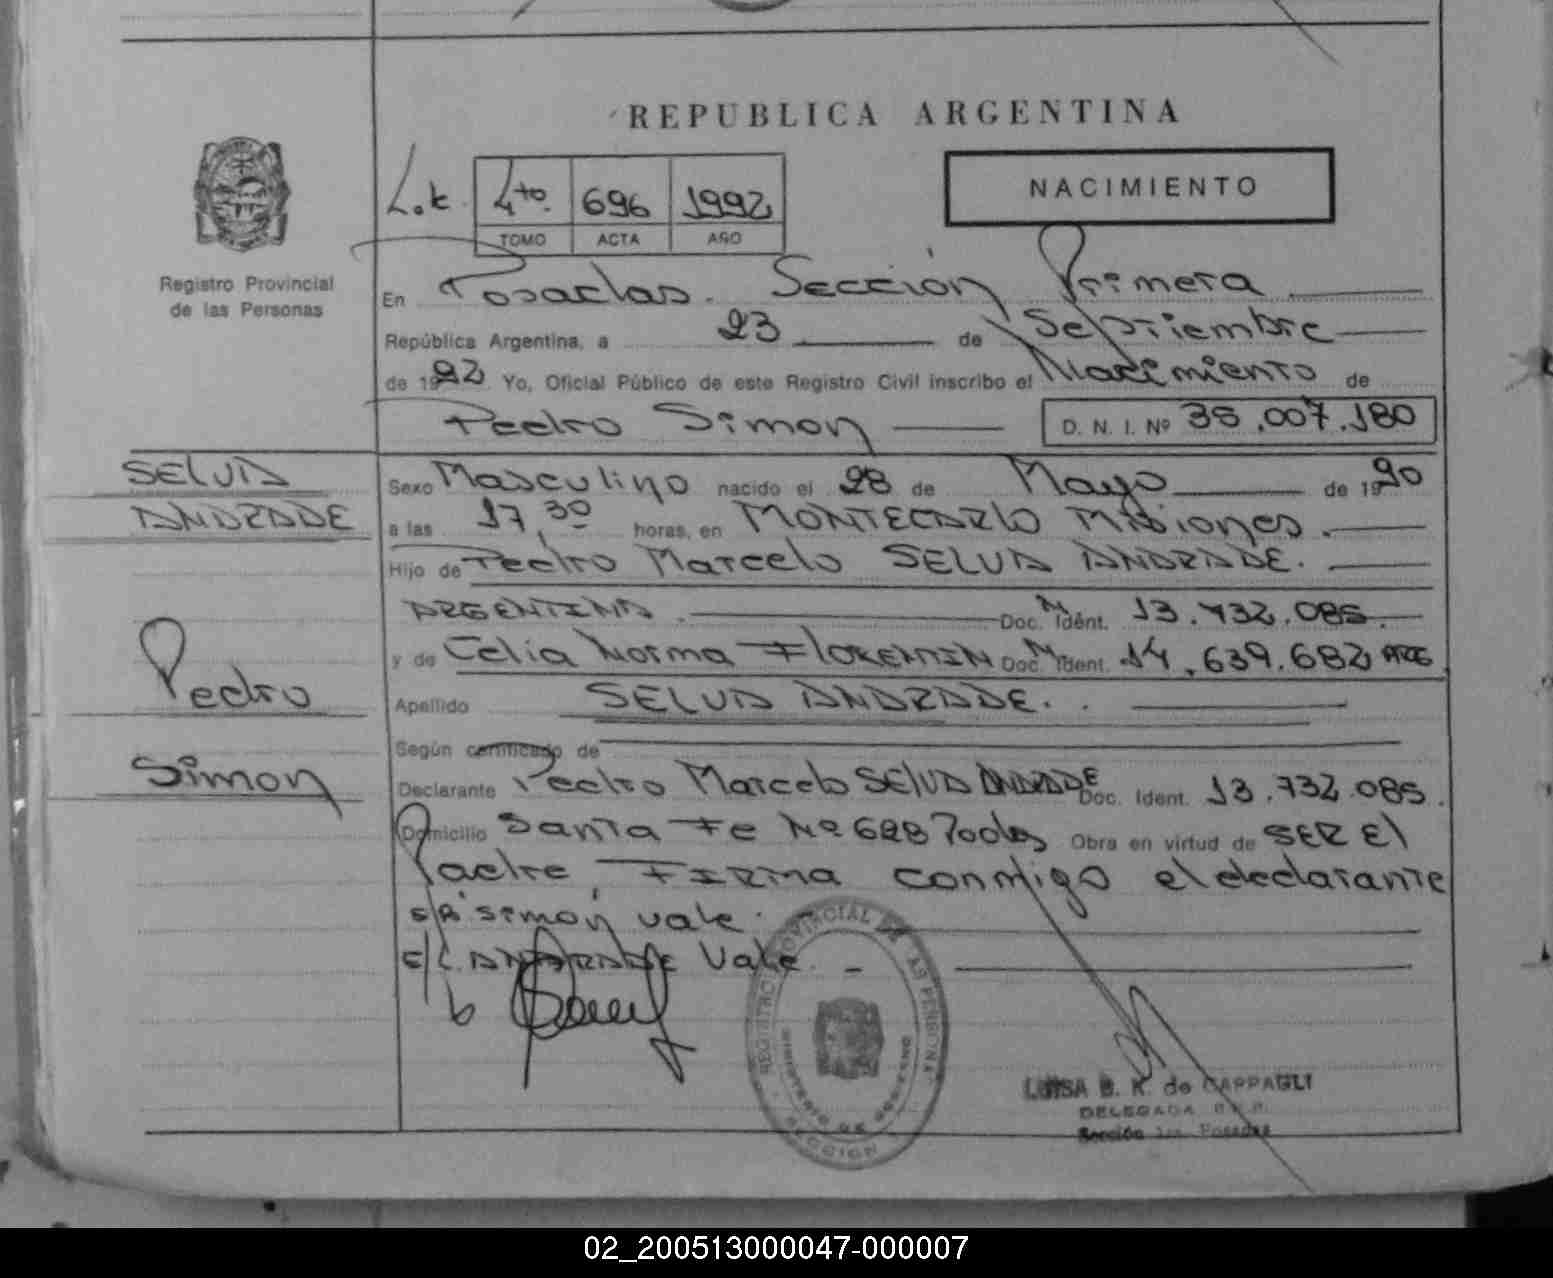 REPUBLICA ARGENTINA
L.k. 4to. 696 1992
TOMO ACTA AÑO
NACIMIENTO
Registro Provincial
de las Personas
En Posadas. Sección Primera
República Argentina, a 23 de Septiembre
de 1992 Yo, Oficial Público de este Registro Civil inscribo el Nacimiento de
Pedro Simon D. N. I. Nº 35.007.180
SELVA
ANDRADE
Pedro
Simon
Sexo Masculino nacido el 28 de Mayo de 1990
a las 17,30 horas, en MONTECARLO Misiones.
Hijo de Pedro Marcelo SELVA ANDRADE.
ARGENTINA. Doc. Ident. 13.732.085.
y de Celia Norma FLORENTIN Doc. Ident. 14.639.682 ARG
Apellido SELVA ANDRADE.
Según certificado de
Declarante Pedro Marcelo SELVA ANDRADE Doc. Ident. 13.732.085.
Domicilio Santa Fe Nº 628 Podas Obra en virtud de SER El
Padre, FIRMA conmigo el declarante
s/R simon vale.
E/L. ANDRADE Vale. -
REGISTRO PROVINCIAL DE LAS PERSONAS
MINISTERIO DE GOBIERNO
SECCION
LUISA B. K. de CAPPAGLI
DELEGADA R.P.P.
Sección 1ra. Posadas
02_200513000047-000007